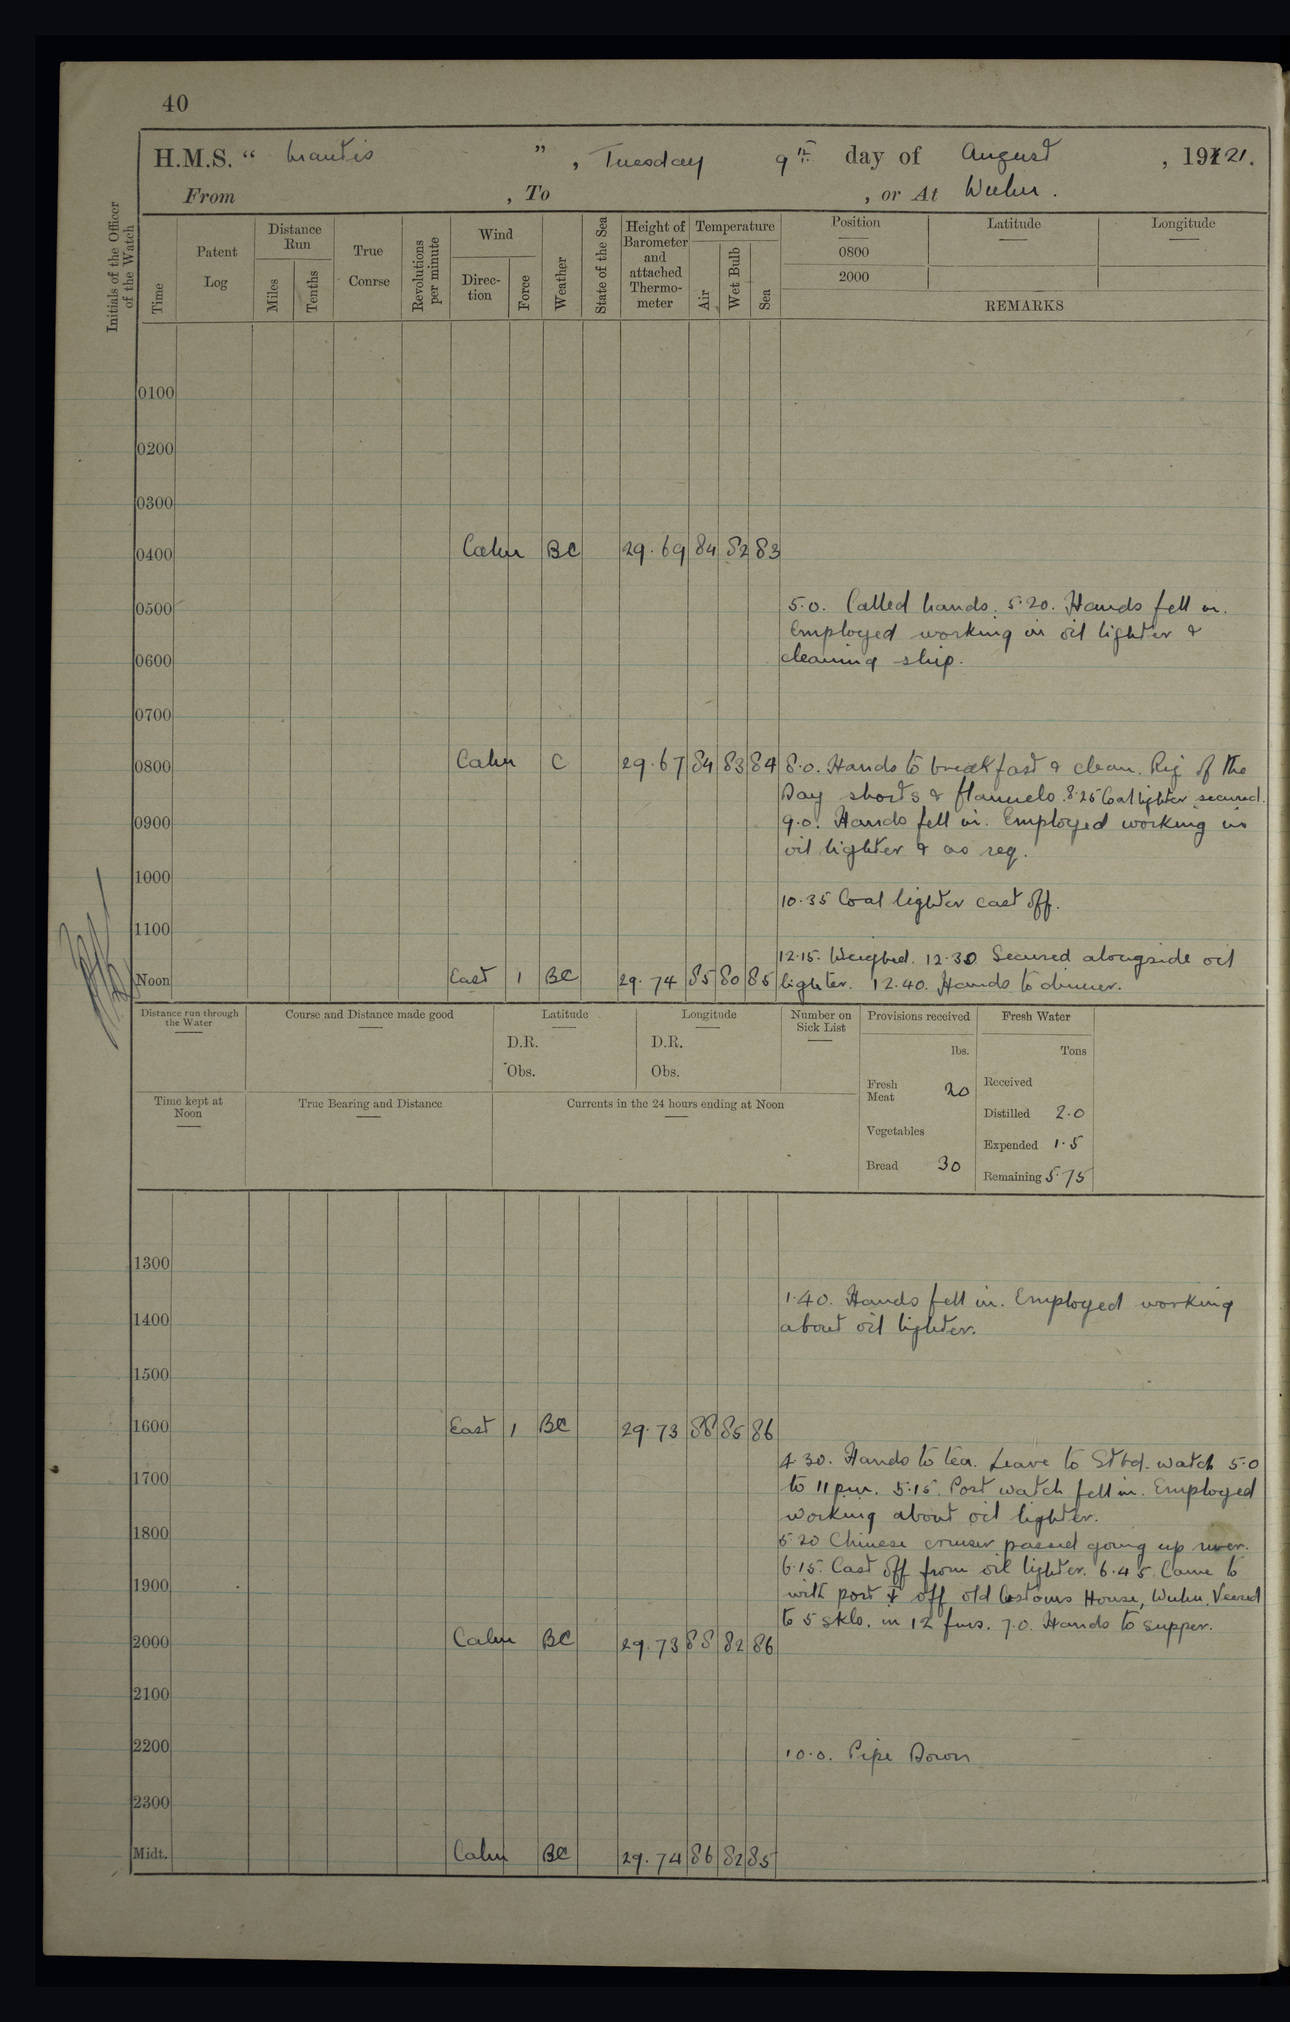 40
H.M.S. “ Mantis ” , Tuesday 9th day of August , 191 21.
From , To , or At Wuhu.
Initials of the Officer of the Watch
Time
Patent Log
Distance Run
Miles
Tenths
True Course
Revolutions per minute
Wind
Direc-tion
Force
Weather
State of the Sea
Height of Barometer and attached Thermo-meter
Temperature
Air
Wet Bulb
Sea
Position
Latitude
Longitude
0800
2000
REMARKS
0100
0200
0300
0400 Calm BC 29.69 84 82 83
0500 5.0. Called hands. 5.20. Hands fell in.
Employed working in oil lighter &
0600 cleaning ship.
0700
0800 Calm C 29.67 84 83 84 8.0. Hands to breakfast & clean. Rig of the
Day shorts & flannels. 8.25 Coal lighter secured.
0900 9.0. Hands fell in. Employed working in
oil lighter & as req.
1000
10.35 Coal lighter cast off.
1100
12.15. Weighed. 12.30 Secured alongside oil
Noon East 1 BC 29.74 85 80 85 lighter. 12.40. Hands to dinner.
Distance run through the Water
Course and Distance made good
Latitude
D.R.
Obs.
Longitude
D.R.
Obs.
Number on Sick List
Provisions received
lbs.
Fresh Meat 20
Vegetables
Bread 30
Fresh Water
Tons
Received
Distilled 2.0
Expended 1.5
Remaining 5.75
Time kept at Noon
True Bearing and Distance
Currents in the 24 hours ending at Noon
1300
1.40. Hands fell in. Employed working
1400 about oil lighter.
1500
1600 East 1 BC 29.73 88 85 86
4.30. Hands to tea. Leave to Stbd. watch 5.0
1700 to 11 p.m. 5.15. Port watch fell in. Employed
working about oil lighter.
1800 5.20 Chinese cruiser passed going up river.
6.15. Cast off from oil lighter. 6.45. Came to
1900 with port ⚓ off old Customs House, Wuhu. Veered
to 5 skls. in 12 fms. 7.0. Hands to supper.
2000 Calm BC 29.73 88 82 86
2100
2200 10.0. Pipe Down
2300
Midt. Calm BC 29.74 86 82 85